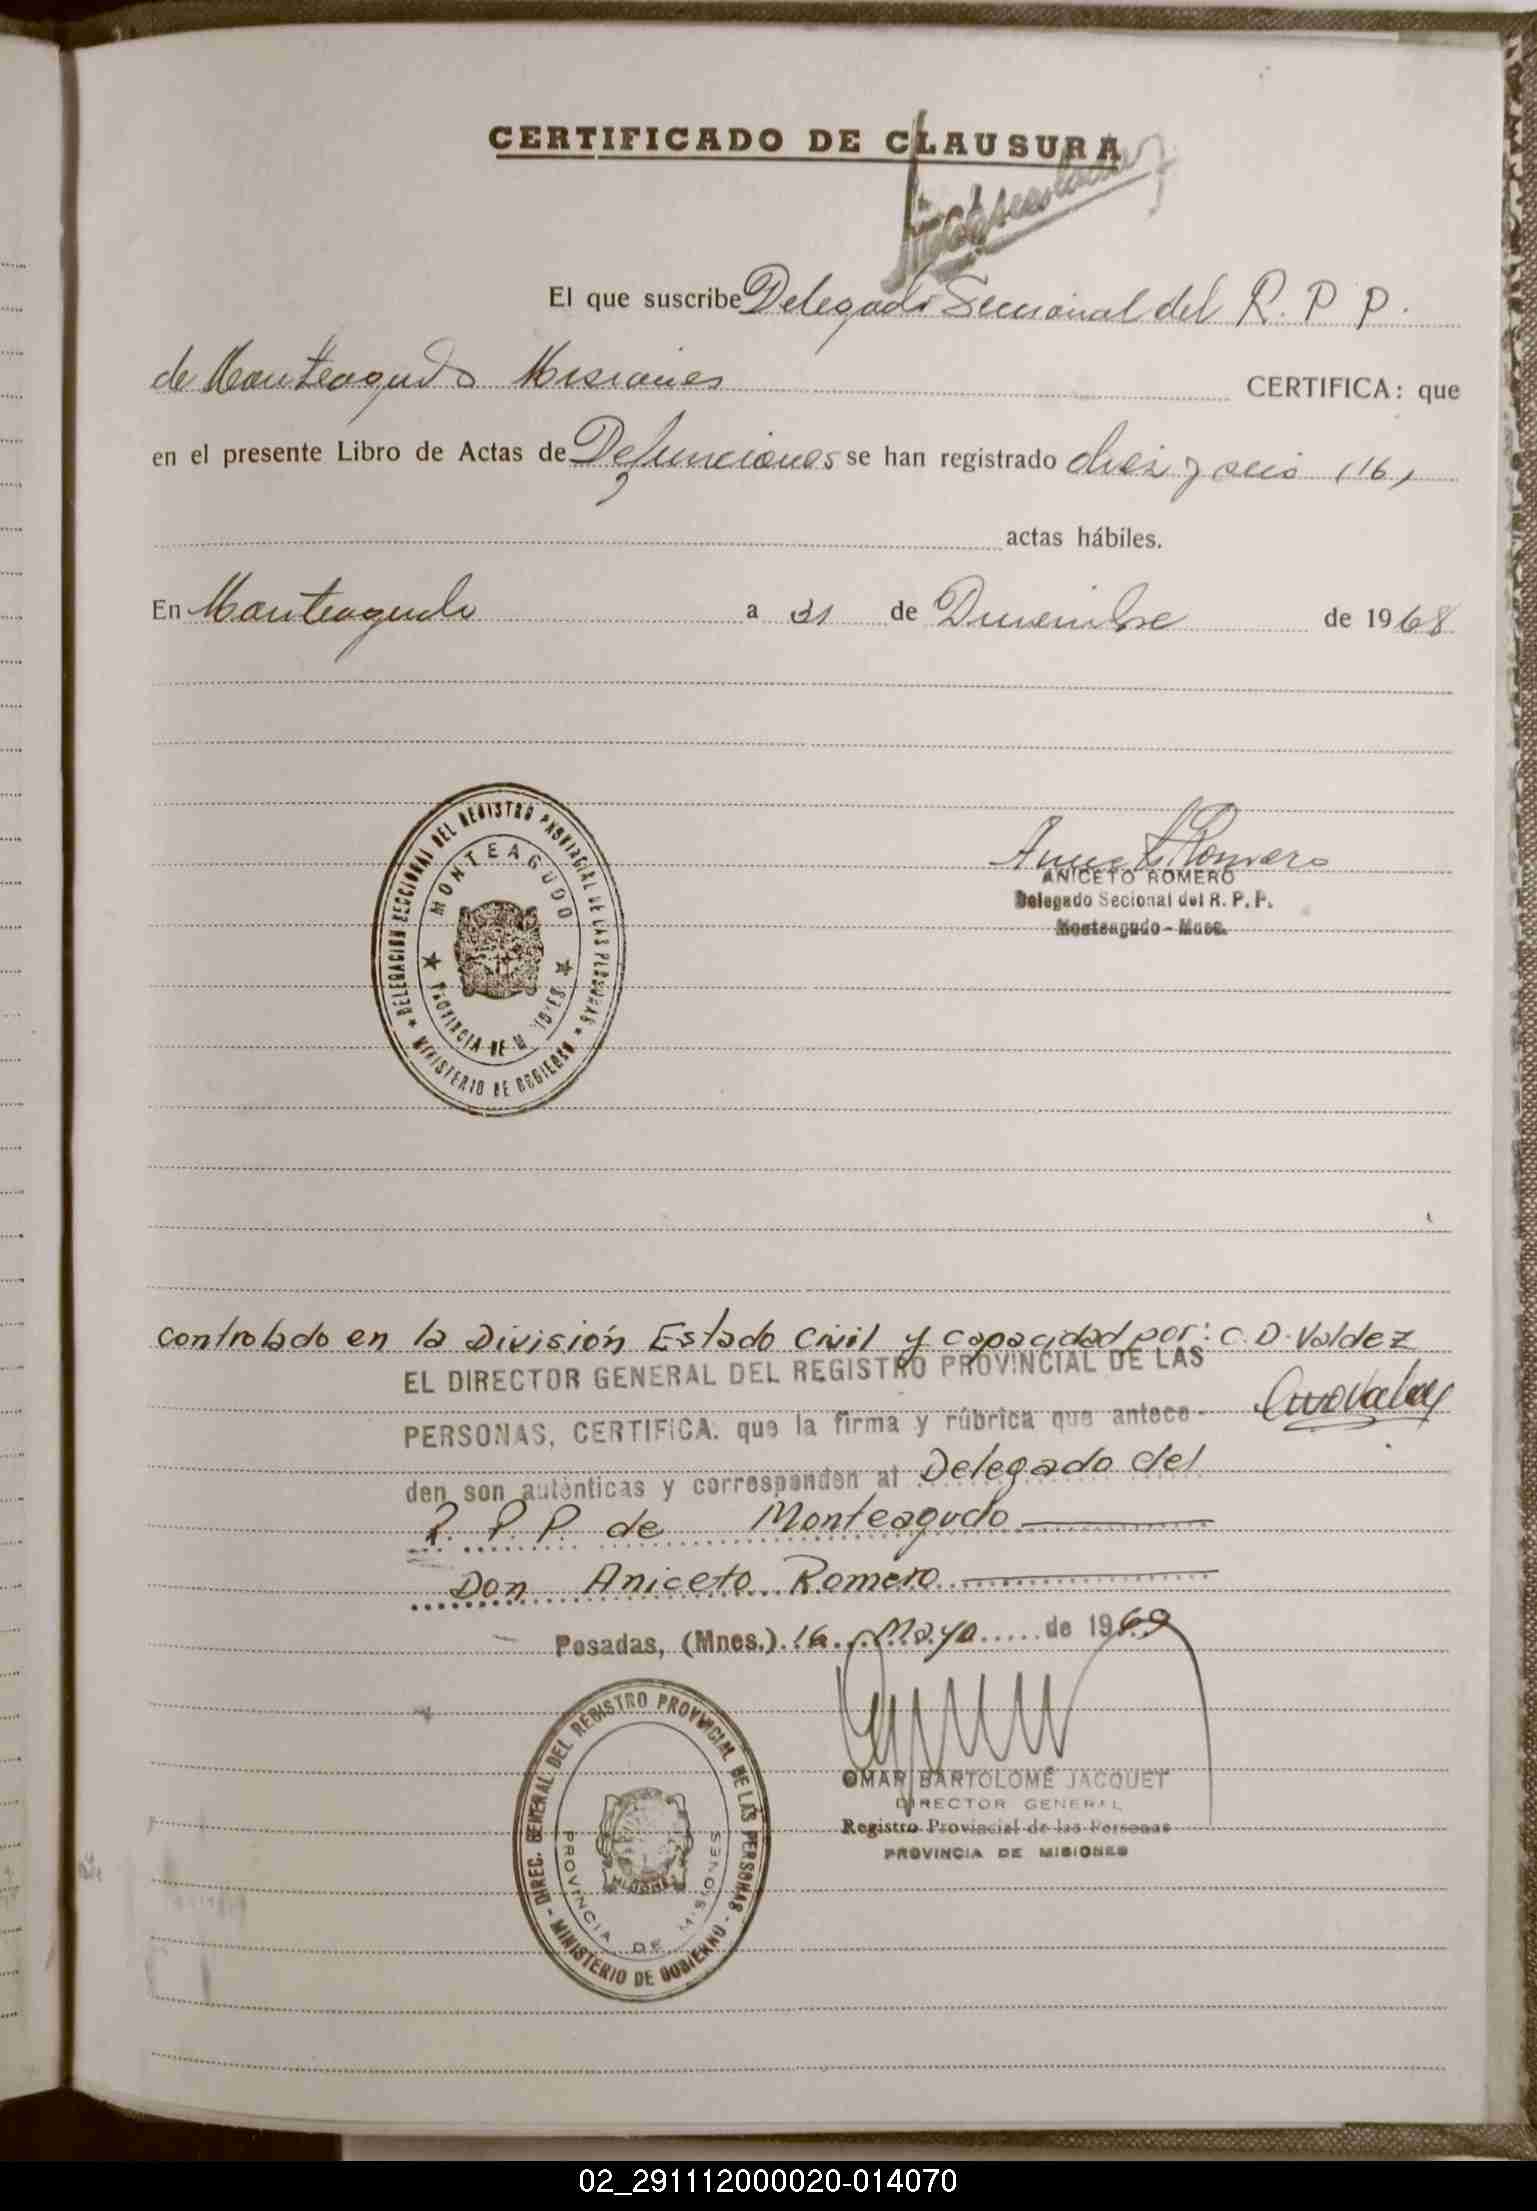 CERTIFICADO DE CLAUSURA
El que suscribe Delegado Seccional del R. P. P.
de Monteagudo Misiones CERTIFICA: que
en el presente Libro de Actas de Defunciones se han registrado diez y seis (16)
actas hábiles.
En Monteagudo a 31 de Diciembre de 1968
DELEGACION SECCIONAL DEL REGISTRO PROVINCIAL DE LAS PERSONAS
MINISTERIO DE GOBIERNO
MONTEAGUDO
PROVINCIA DE MISIONES
ANICETO ROMERO
Delegado Secional del R. P. P.
Monteagudo - Mnes.
Controlado en la División Estado Civil y capacidad por: C. D. Valdez
EL DIRECTOR GENERAL DEL REGISTRO PROVINCIAL DE LAS
PERSONAS, CERTIFICA: que la firma y rúbrica que antece-
den son auténticas y corresponden al Delegado del
R. P. P. de Monteagudo
Don Aniceto Romero
Posadas, (Mnes.) 16 Mayo de 1969
DIREC. GENERAL DEL REGISTRO PROVINCIAL DE LAS PERSONAS
MINISTERIO DE GOBIERNO
PROVINCIA DE MISIONES
OMAR BARTOLOMÉ JACQUET
DIRECTOR GENERAL
Registro Provincial de las Personas
PROVINCIA DE MISIONES
02_291112000020-014070